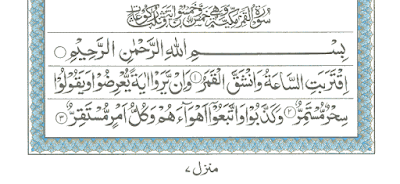 سُوْرَةُ الْقَمَرِ مَكِّيَّةٌ وَهِيَ خَمْسٌ وَخَمْسُوْنَ اٰيَةً وَ رُكُوْعَاتٍ
بِسْمِ اللّٰهِ الرَّحْمٰنِ الرَّحِيْمِ
اِقْتَرَبَتِ السَّاعَةُ وَانْشَقَّ الْقَمَرُ ۝۱ وَاِنْ يَّرَوْا اٰيَةً يُّعْرِضُوْا وَيَقُوْلُوْا
سِحْرٌ مُّسْتَمِرٌّ ۝۲ وَكَذَّبُوْا وَاتَّبَعُوْٓا اَهْوَآءَهُمْ وَكُلُّ اَمْرٍ مُّسْتَقِرٌّ ۝۳
منزل ۷